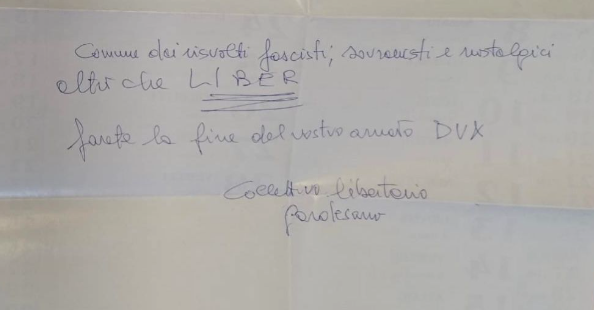 Comune dai risvolti fascisti, sovranisti e nostalgici
altro che LIBER
farete la fine del vostro amato DVX
Collettivo libertario
gardesano